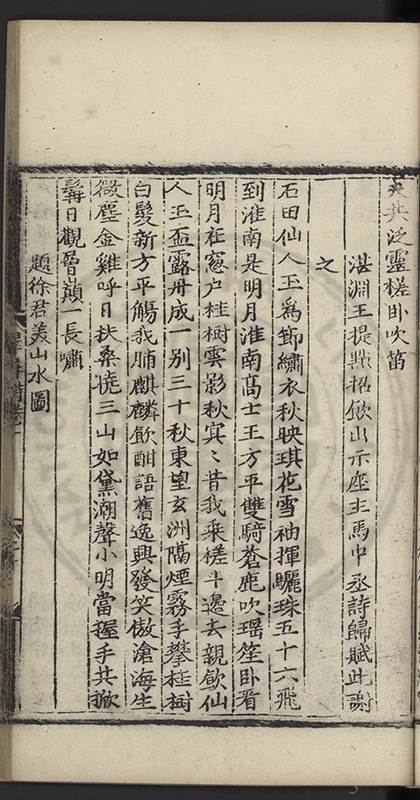 共泛靈槎臥吹笛
湛淵王提點招飲出示座主馬中丞詩歸賦此謝
之
石田仙人玉為節繡衣秋映琪花雪袖揮驪珠五十六飛
到淮南是明月淮南高士王方平雙騎蒼鹿吹瑶笙臥看
明月在窓户桂樹雲影秋冥〻昔我乘槎斗邊去親飲仙
人玉盃露丹成一别三十秋東望玄洲隔煙霧手攀桂樹
白髮新方平觴我脯麒麟飲酣語舊逸興發笑傲滄海生
微塵金雞呼日扶桑曉三山如黛潮聲小明當握手共掀
髯日觀層巔一長嘯
題徐君美山水圖